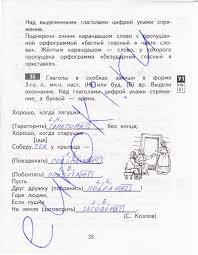 Над выделенными глаголами цифрой укажи спряжение.
Подчеркни синим карандашом слово с пропущенной орфограммой «беглый гласный в части слова». Жёлтым карандашом — слово, у которого пропущена орфограмма «безударный гласный в приставке».
35 Глаголы в скобках запиши в форме У1
3-го л., мн.ч. наст. (Н) или буд. (Б) вр. Выдели окончания. Над глаголами цифрой укажи спряжение, а буквой — время.
Хорошо, когда лягушки
(Тараторить) тараторят без конца;
Хорошо, когда старушки
Соберутся у крыльца —
(Позвать)
(Поболтать) поболтают
Пусть
Друг дружку (побранить) побранят!
Горе людям,
Если пушки
На земле (заговорить) заговорят!
(С. Козлов)
35